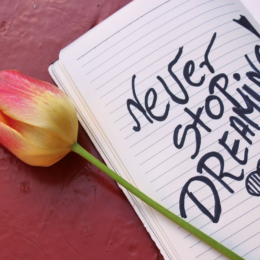 Never
STOP
DREAMING